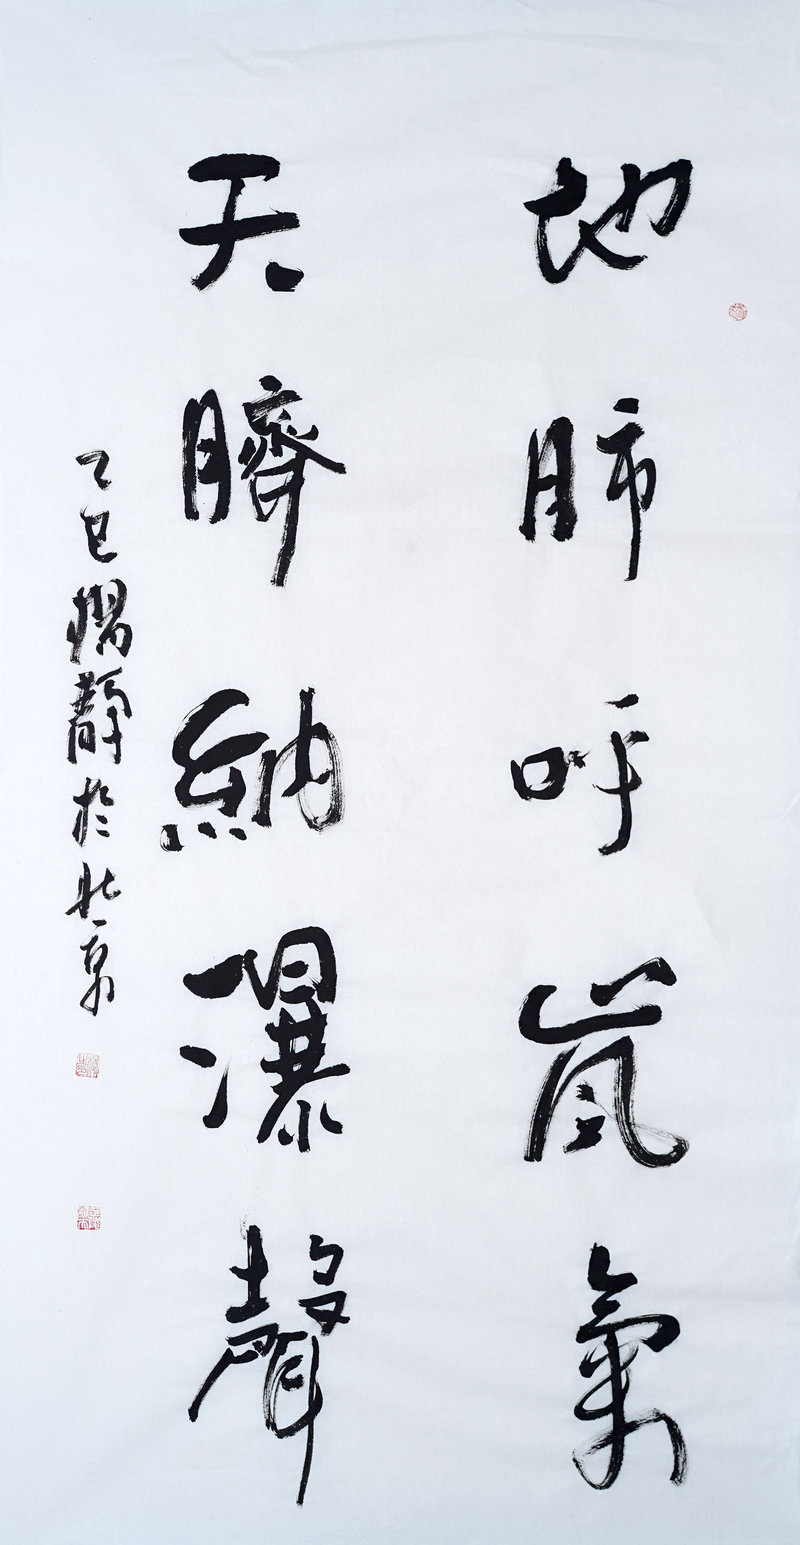 地肺呼嵐氣
天臍納瀑聲
乙巳楊靜於北京